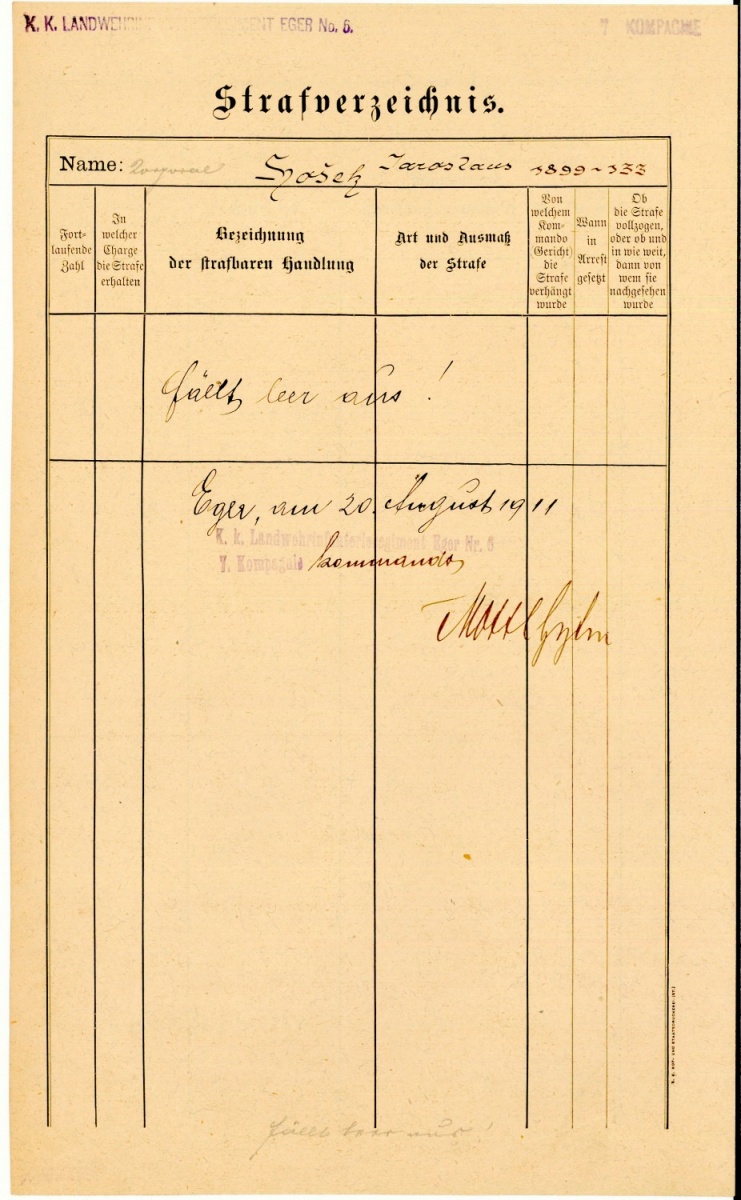 K. K. LANDWEHRINFANTERIEREGIMENT EGER No. 6.
7 KOMPAGNIE
Strafverzeichnis.
Name: Korporal Hošek Jaroslaus 1899-133
Fort-
laufende
Zahl
In
welcher
Charge
die Strafe
erhalten
Bezeichnung
der strafbaren Handlung
Art und Ausmaß
der Strafe
Von
welchem
Kom-
mando
(Gericht)
die
Strafe
verhängt
wurde
Wann
in
Arrest
gesetzt
Ob
die Strafe
vollzogen,
oder ob und
in wie weit,
dann von
wem sie
nachgesehen
wurde
fällt leer aus!
Eger, am 20. August 1911
K. k. Landwehrinfanterieregiment Eger Nr. 6
7. Kompagnie kommando
Mottl
fällt leer aus!